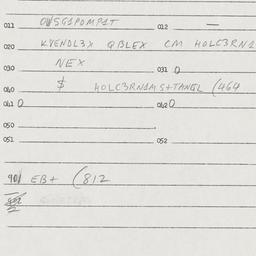 011 OWSG1POMP1T 012 —
020 KVENDL3X QBLEX CM HOLC3RN1
030 NEX 031 0
060 $ HOLC3RN1MS+TANGL (464
061 0 062 0
050
051 052
901 EB+ (812